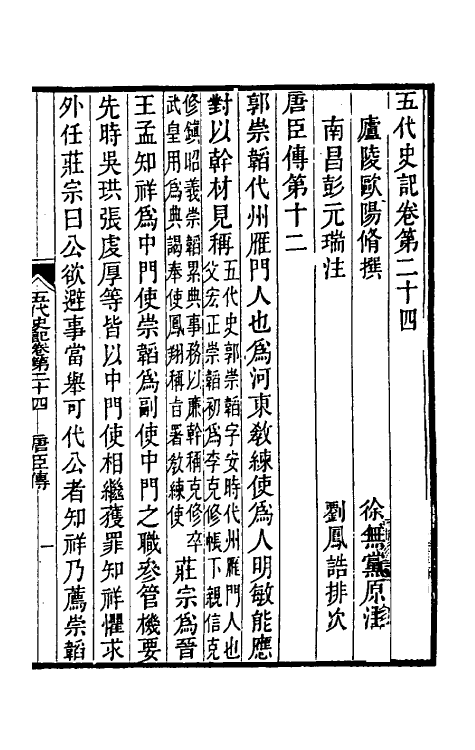 五代史記卷第二十四
廬陵歐陽脩撰　徐無黨原注
南昌彭元瑞注　劉鳳誥排次
唐臣傳第十二
郭崇韜代州雁門人也爲河東敎練使爲人明敏能應
對以幹材見稱五代史郭崇韜字安時代州雁門人也
父宏正崇韜初爲李克修帳下親信克
修鎮昭義崇韜累典事務以廉幹稱克修卒
武皇用爲典謁奉使鳳翔稱旨署敎練使莊宗爲晉
王孟知祥爲中門使崇韜爲副使中門之職參管機要
先時吳珙張虔厚等皆以中門使相繼獲罪知祥懼求
外任莊宗曰公欲避事當舉可代公者知祥乃薦崇韜
五代史記卷第二十四　唐臣傳　一